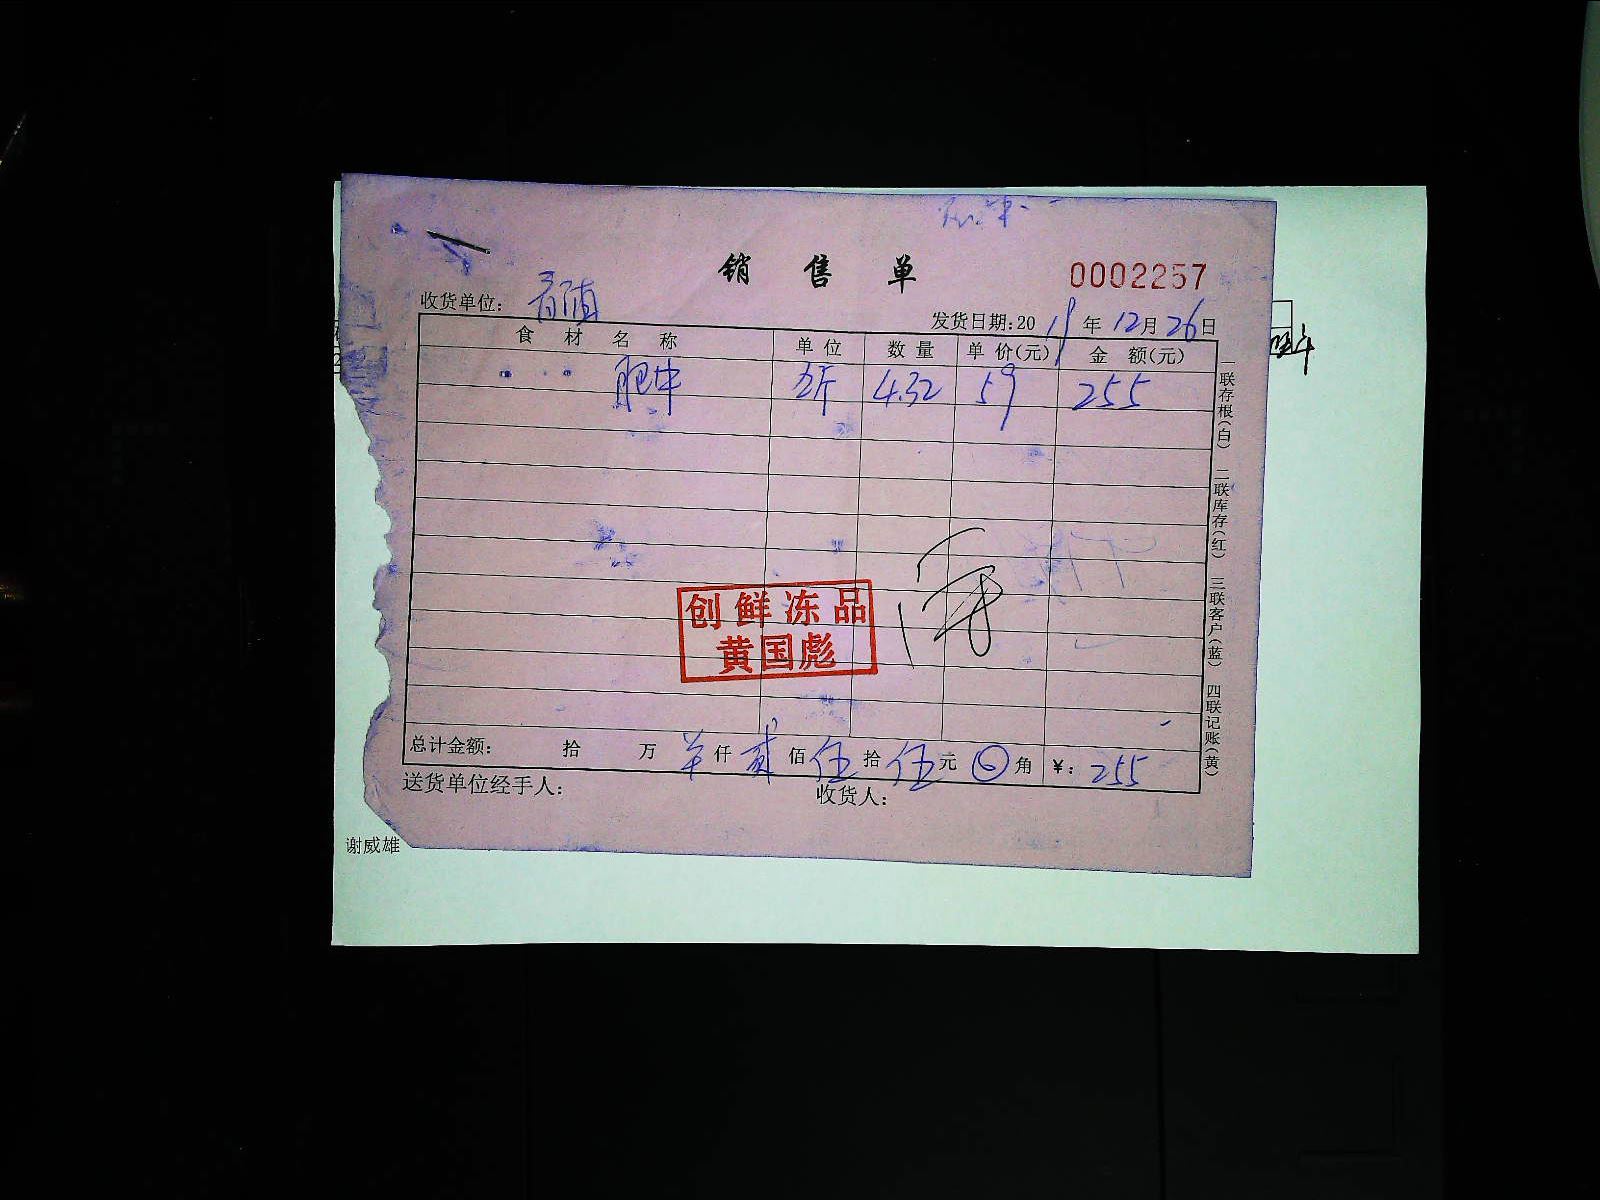 销售单
0002257
收货单位：
发货日期：2019年12月26日
食材名称 单位 数量 单价(元) 金额(元)
肥牛 斤 4.32 59 255
创鲜冻品
黄国彪
总计金额： 拾 万 仟 贰 佰 伍 拾 伍 元 角 ¥：255
送货单位经手人：
收货人：
一联存根(白) 二联库存(红) 三联客户(蓝) 四联记账(黄)
谢威雄